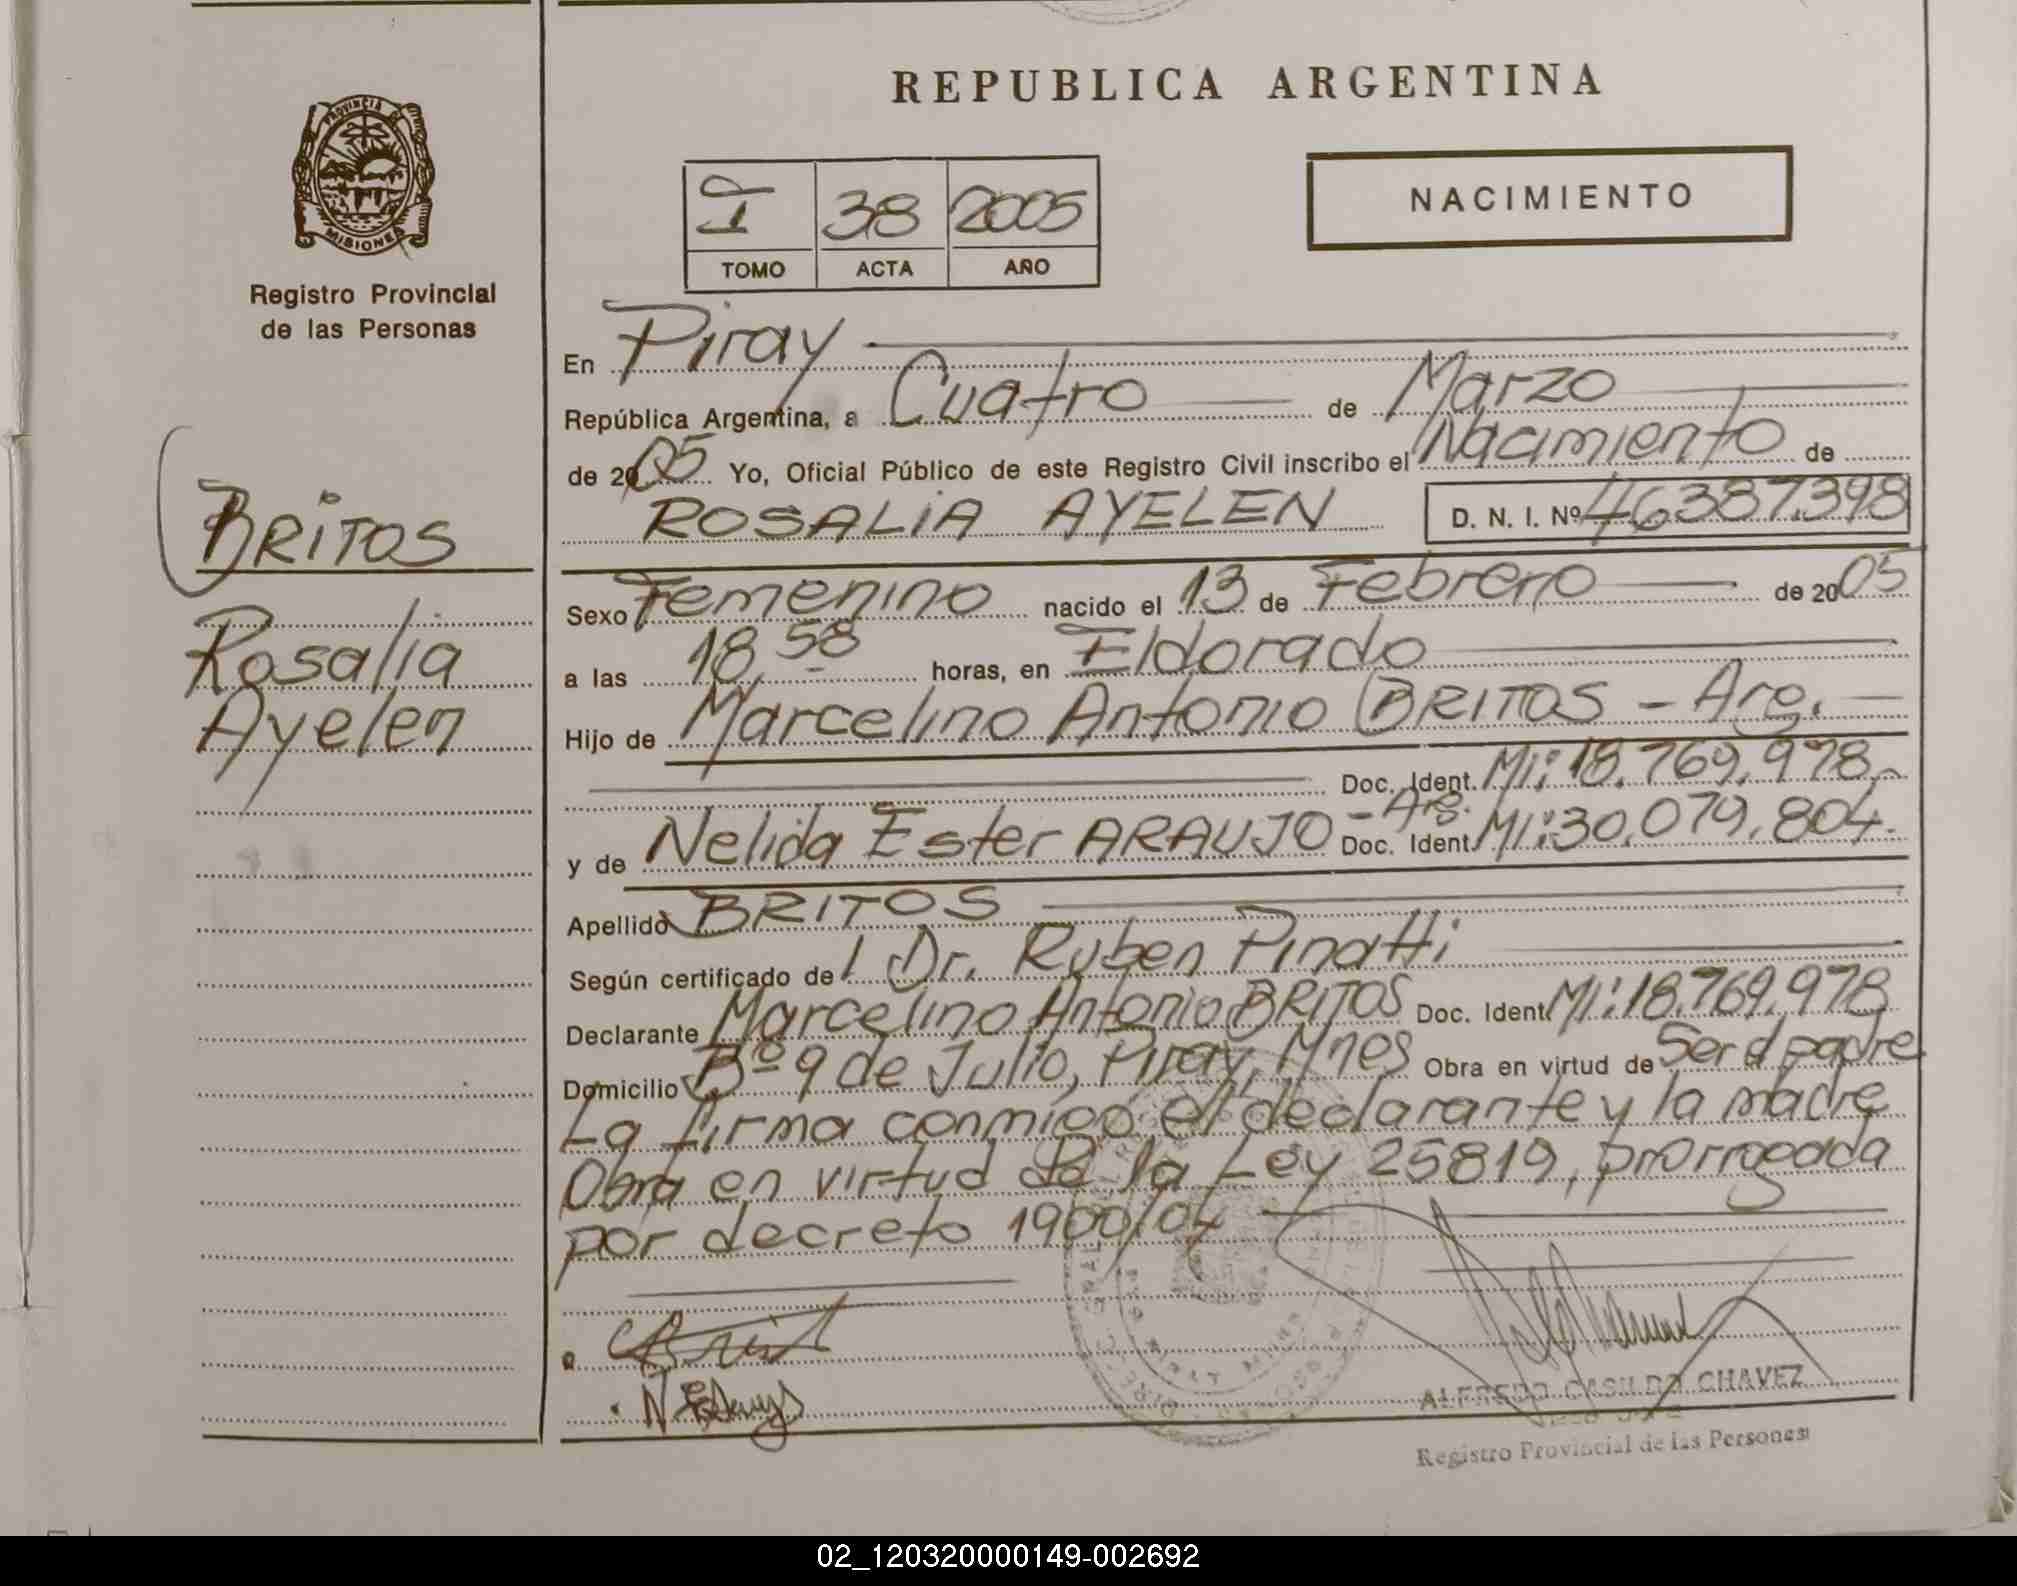 REPUBLICA ARGENTINA
PROVINCIA DE
MISIONES
Registro Provincial
de las Personas
I 38 2005
TOMO ACTA AÑO
NACIMIENTO
En Piray
República Argentina, a Cuatro de Marzo
de 2005 Yo, Oficial Público de este Registro Civil inscribo el Nacimiento de
ROSALIA AYELEN D. N. I. Nº 46387.398
BRITOS
Rosalia
Ayelen
Sexo Femenino nacido el 13 de Febrero de 2005
a las 18,58 horas, en Eldorado
Hijo de Marcelino Antonio BRITOS - Arg.
Doc. Ident. MI: 18.769.978.
y de Nelida Ester ARAUJO - Arg. Doc. Ident. MI: 30.079.804.
Apellido BRITOS
Según certificado del Dr. Ruben Pinatti
Declarante Marcelino Antonio BRITOS Doc. Ident. MI: 18.769.978
Domicilio Bº 9 de Julio, Piray, Mnes Obra en virtud de Ser el padre
La firma conmigo el declarante y la madre
Obra en virtud de la Ley 25819, prorrogada
por decreto 1900/04
ALFREDO CASILDO CHAVEZ
Registro Provincial de las Personas
02_120320000149-002692